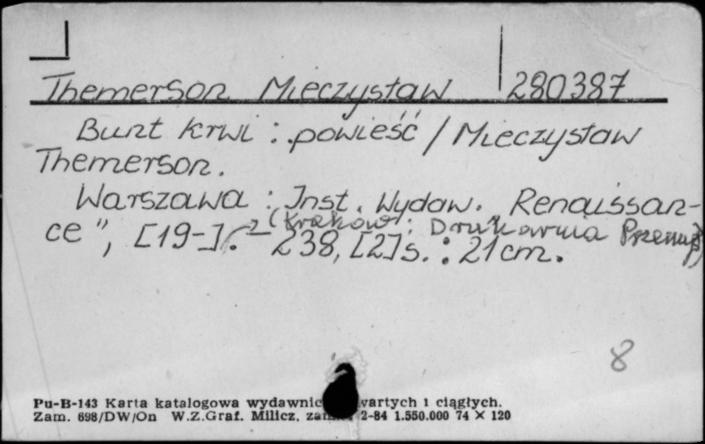 Themerson Mieczysław 280387
Bunt krwi : powieść / Mieczysław
Themerson.
Warszawa : Inst. Wydaw. „Renaissan-
(Kraków : Drukarnia Przemysł.)
ce", [19-]. - 238, [2] s. : 21 cm.
8
Pu-B-143 Karta katalogowa wydawnic wartych i ciągłych.
Zam. 698/DW/On W.Z.Graf. Milicz, zam. 2-84 1.550.000 74 × 120